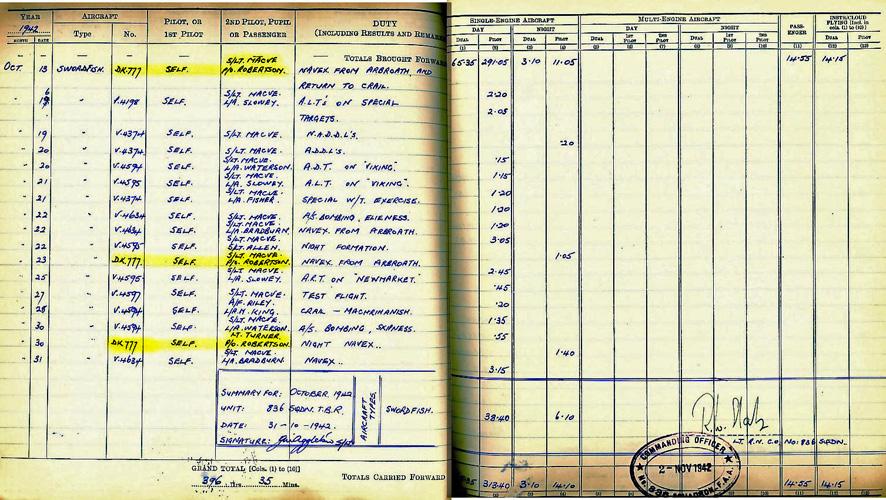 YEAR AIRCRAFT PILOT, OR 1ST PILOT 2ND PILOT, PUPIL OR PASSENGER DUTY (INCLUDING RESULTS AND REMARKS
1942
MONTH DATE Type No.
— — — — — TOTALS BROUGHT FORWARD
OCT. 13 SWORDFISH. DK777 SELF. S/LT. MACVE P/O. ROBERTSON. NAVEX FROM ARBROATH AND
RETURN TO CRAIL.
P.4198 SELF. S/LT. MACVE. L/A. SLOWEY. A.L.T'S ON SPECIAL
TARGETS.
" 19 " V.4374 SELF. S/LT. MACVE. N.A.D.D.L'S.
" 20 " V.4374 SELF. S/LT. MACVE. A.D.D.L'S.
" 20 " V.4594 SELF. S/LT. MACVE. L/A. WATERSON. A.D.T. ON "VIKING".
" 21 " V.4595 SELF. S/LT. MACVE. L/A. SLOWEY. A.L.T. ON "VIKING".
" 21 " V.4374 SELF. S/LT. MACVE. L/A. FISHER. SPECIAL W/T. EXERCISE.
" 22 " V.4634 SELF. S/LT. MACVE. A/S. BOMBING, ELIENESS.
" 22 " V.4634 SELF. S/LT. MACVE. L/A. BRADBURN. NAVEX FROM ARBROATH.
" 22 " V.4595 SELF. S/LT. ALLEN. NIGHT FORMATION.
" 23 " DK777. SELF. S/LT. MACVE. P/O. ROBERTSON. NAVEX FROM ARBROATH.
" 25 " V.4595. SELF. S/LT. MACVE. L/A. SLOWEY. A.R.T. ON "NEWMARKET."
" 27 " V.4597 SELF. S/LT. MACVE. TEST FLIGHT.
" 28 " V.4594 SELF. A/F. RILEY. L/A. H. KING. CRAIL - MACHRIHANISH.
" 30 " V.4594 SELF. S/LT. MACVE. L/A. WATERSON. A/S. BOMBING,
" 30 " DK777 SELF. LT. TURNER P/O. ROBERTSON. NIGHT NAVEX..
" 31 V.4634 SELF. S/LT. MACVE L/A. BRADBURN. NAVEX..
SUMMARY FOR: OCTOBER, 1942
UNIT: 836 SQDN. T.B.R.
DATE: 31-10-1942.
SIGNATURE:
AIRCRAFT TYPES. SWORDFISH.
GRAND TOTAL [Cols. (1) to (10)]
396 Hrs. 35 Mins.
TOTALS CARRIED FORWARD
SINGLE-ENGINE AIRCRAFT MULTI-ENGINE AIRCRAFT PASSENGER INSTR/CLOUD FLYING [Incl. in cols. (1) to (10)]
DAY NIGHT DAY NIGHT
DUAL PILOT DUAL PILOT DUAL 1ST PILOT 2ND PILOT DUAL 1ST PILOT 2ND PILOT DUAL PILOT
(1) (2) (3) (4) (5) (6) (7) (8) (9) (10) (11) (12) (13)
65.35 291.05 3.10 11.05 14.55 14.15
2.20
2.05
.20
.15
1.15
1.20
1.20
1.20
3.05
1.05
2.45
.45
.20
1.35
.55
1.40
3.15
38.40 6.10
LT. R.N. C.O. No: 836 SQDN.
COMMANDING OFFICER
2 - NOV 1942
SQUADRON F.A.A.
313.40 3.10 14.10 14.55 14.15